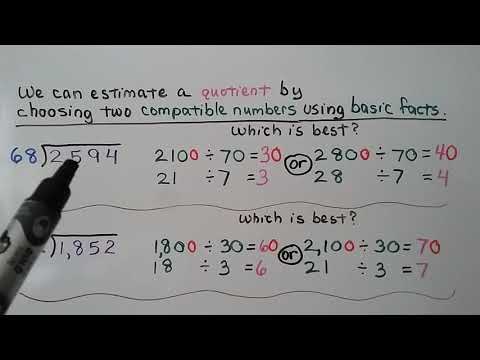 We can estimate a quotient by
choosing two compatible numbers using basic facts.
which is best?
68)2594 2100÷70=30 or 2800÷70=40
21 ÷7=3 28 ÷7=4
which is best?
)1,852 1,800÷30=60 or 2,100÷30=70
18 ÷3=6 21 ÷3=7